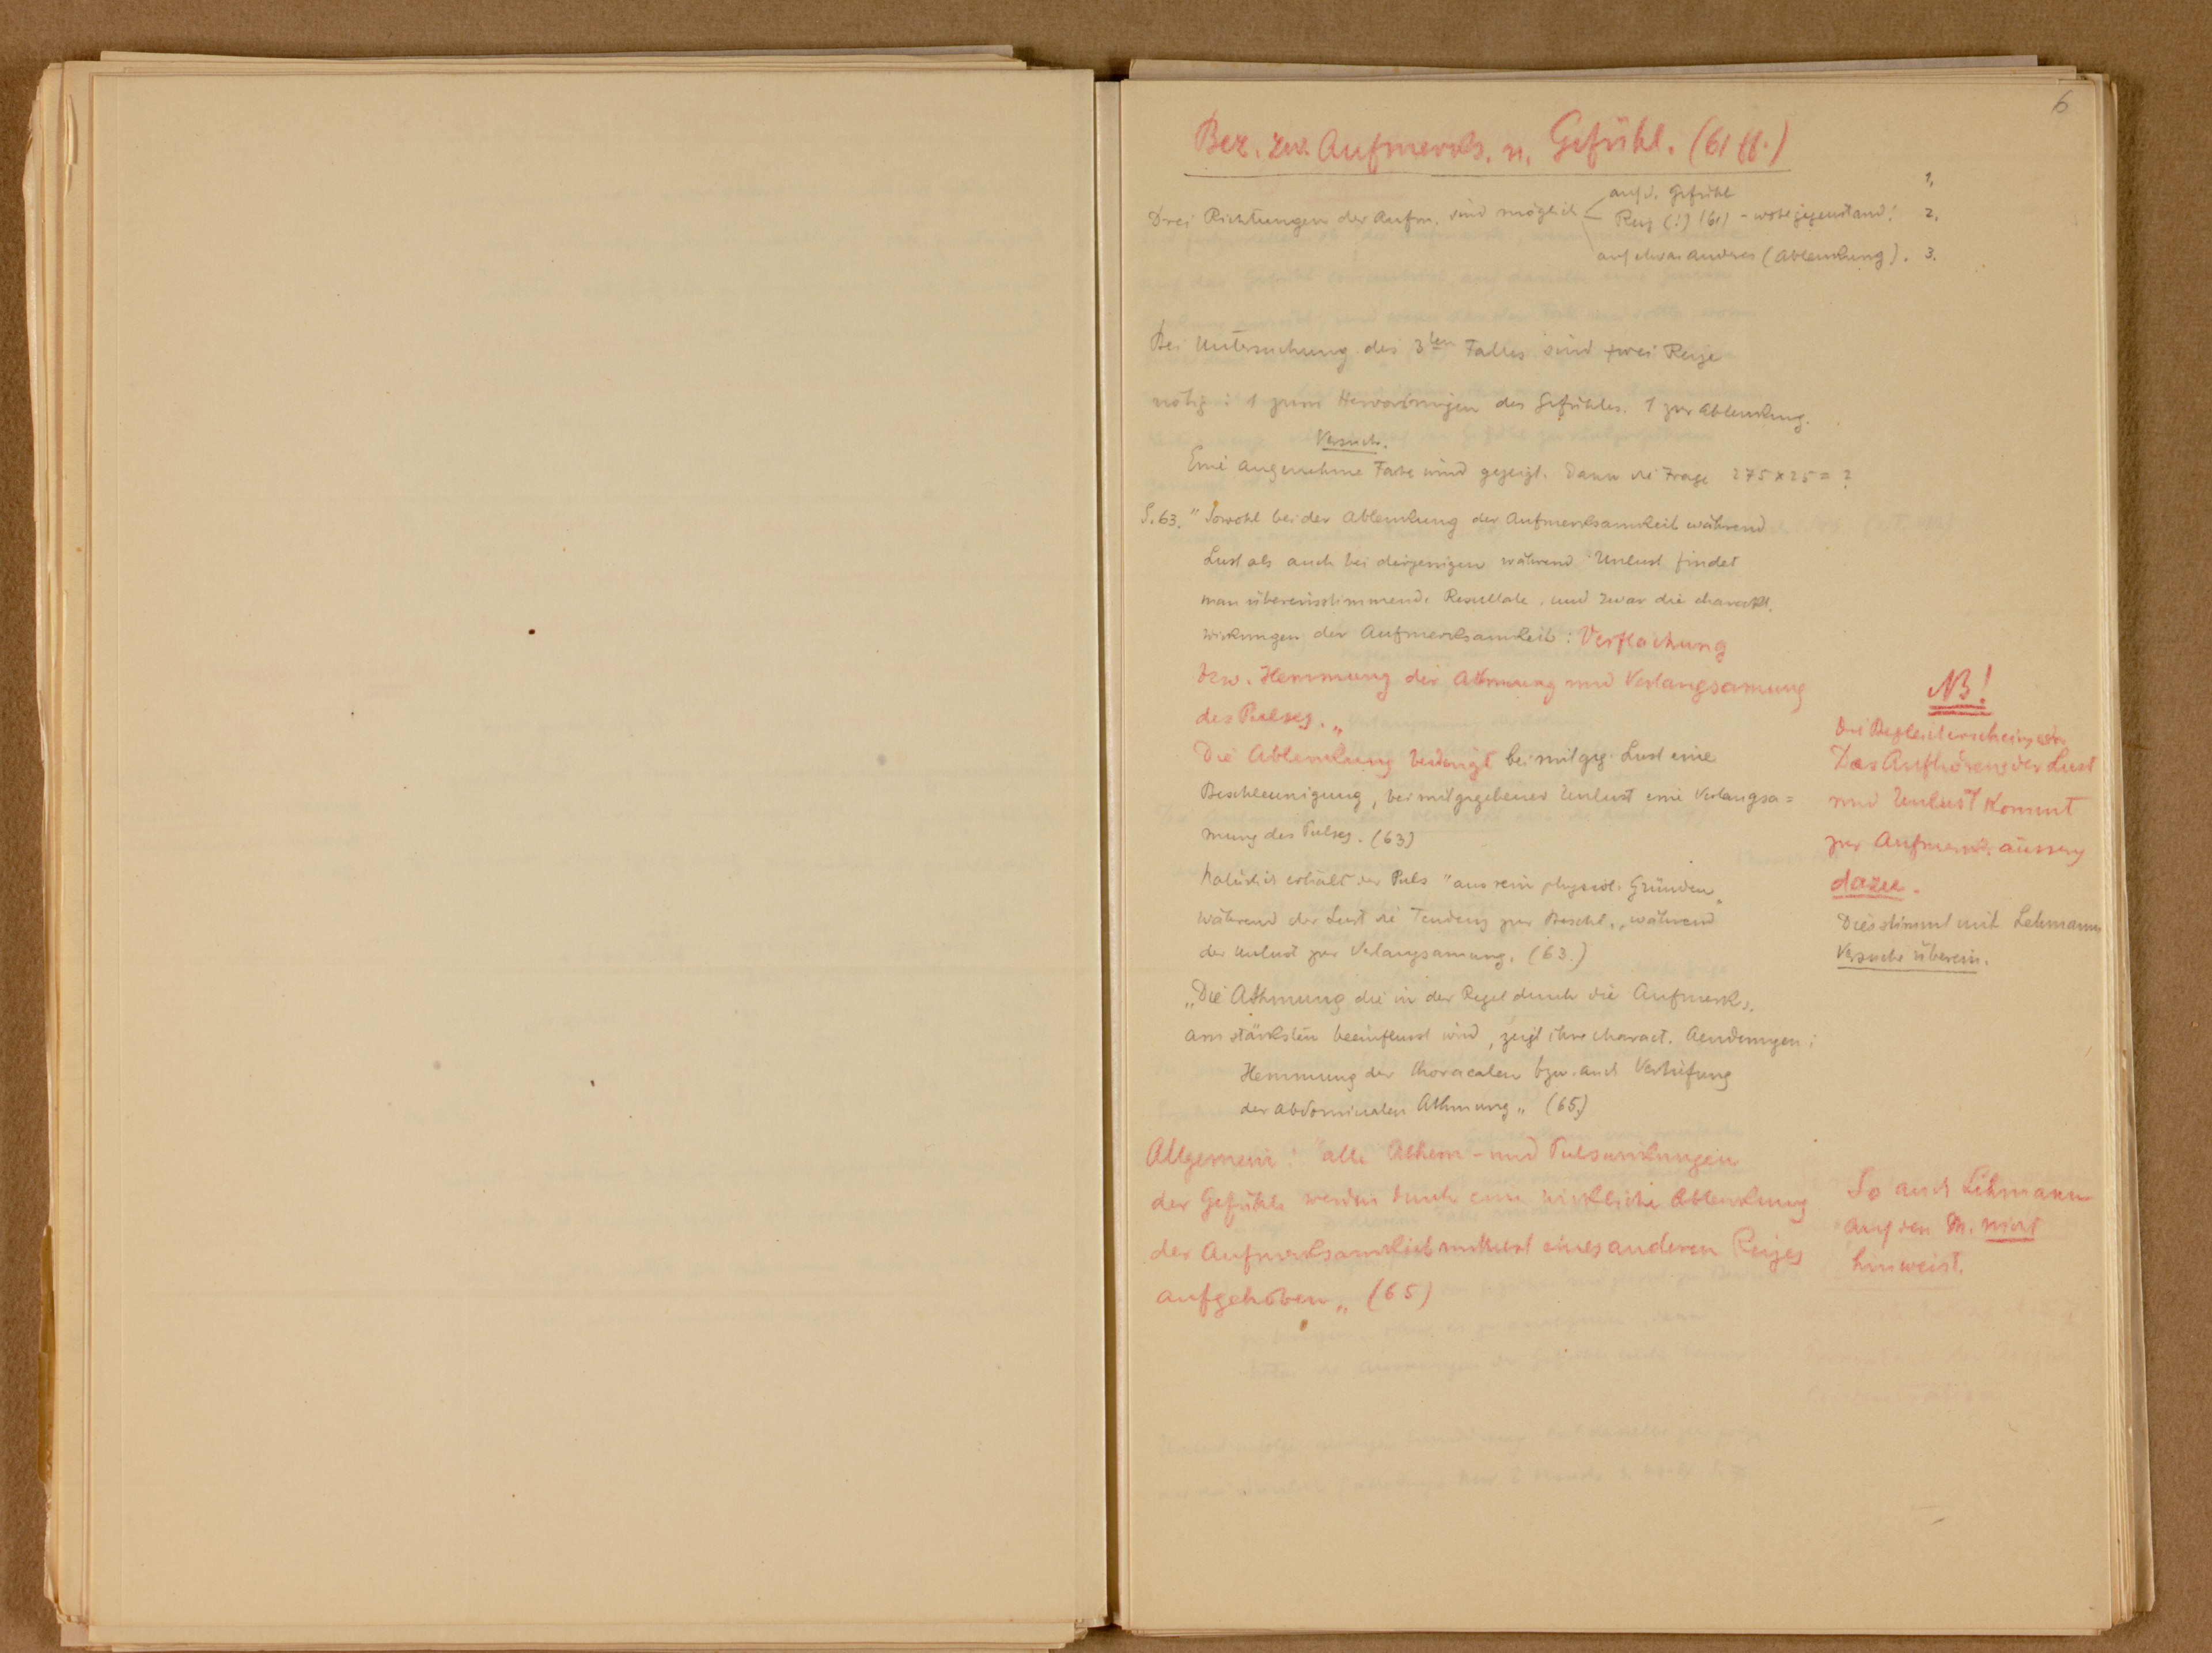 6
Bez. zw. Aufmerks. u. Gefühl. (61 ff.)
Drei Richtungen der Aufm. sind möglich
auf d. Gefühl 1.
Reiz (!) (61) - wohl gegenstand! 2.
auf etwas anderes (Ablenkung). 3.
Bei Untersuchung des 3ten Falles sind zwei Reize
nötig: 1 zum Hervorbringen des Gefühles. 1 zur Ablenkung.
Versuch.
Eine angenehme Farbe wird gezeigt. Dann die Frage 275 x 25 = ?
S. 63. "Sowohl bei der Ablenkung der Aufmerksamkeit während
Lust als auch bei derjenigen während Unlust findet
man übereinstimmende Resultate, und zwar die
Wirkungen der Aufmerksamkeit: Verflachung
bzw. Hemmung der Athmung und Verlangsamung
des Pulses."
Die Ablenkung bedingt bei mitgeg. Lust eine
Beschleunigung, bei mitgegebener Unlust eine Verlangsa=
mung des Pulses. (63)
Natürlich erhält der Puls "aus rein physiol. Gründen"
während der Lust die Tendenz zur Beschl., während
der Unlust zur Verlangsamung. (63.)
„Die Athmung die in der Regel durch die Aufmerks.
am stärksten beeinflusst wird, zeigt ihre charact. Aenderungen:
Hemmung der thoracalen bzw. auch Vertiefung
der abdominalen Athmung" (65)
Allgemein: "alle Athem- und Pulswirkungen
der Gefühle werden durch eine wirkliche Ablenkung
der Aufmerksamkeit mittelst eines anderen Reizes
aufgehoben" (65)
NB!
Die Begleiterscheinungen
Das Aufhören der Lust
und Unlust kommt
zur Aufmerk.
dazu.
Dies stimmt mit Lehmanns
Versuche überein.
So auch Lehmann
auf den M. nicht
hinweist.